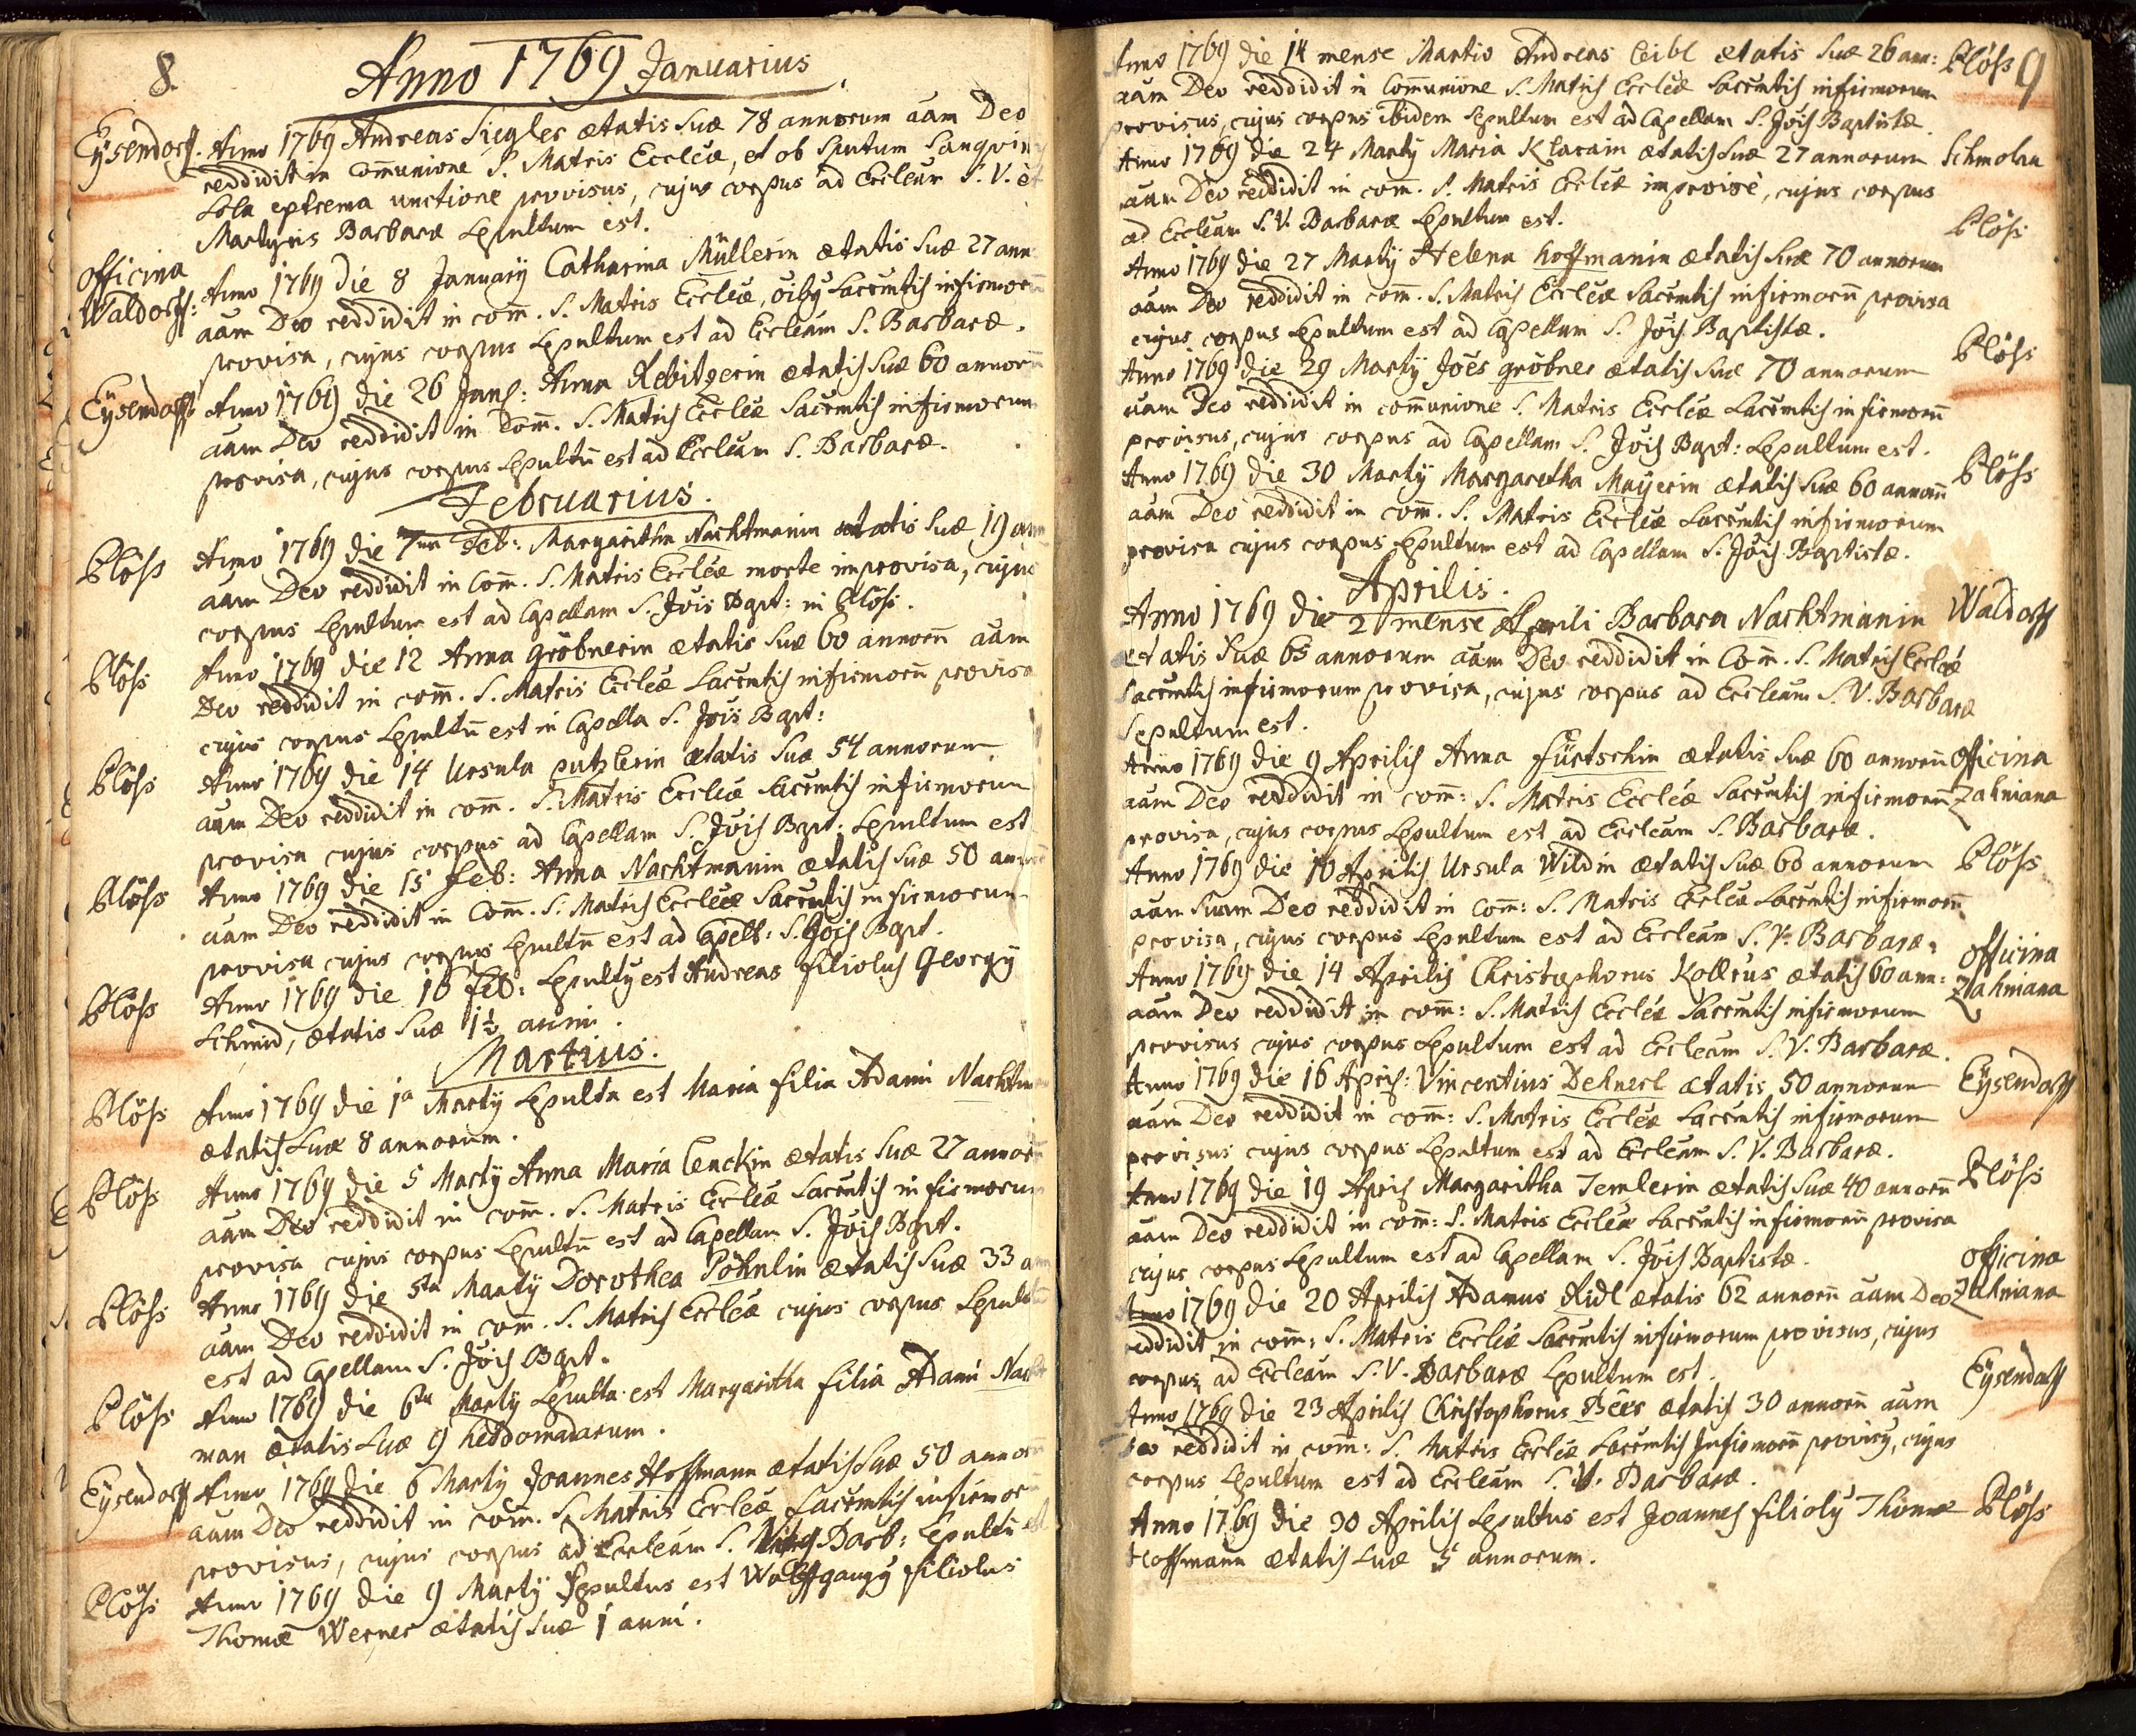 8.
Anno 1769 Januarius
Eÿsendorf. Anno 1769 Andreas Siegler ætatis suæ 78 annorum aam Deo
reddidit in Com̄unione S. Matris Eccleæ, et ob sputum sangvin
sola extrema unctione provisus, cujus corpus ad Eccleam S. V. et
Martyris Barbaræ sepultum est.
Officina
Waldorf: Anno 1769 die 8 Januarÿ Catharina Müllerin ætatis suæ 27 ann
aam Deo reddidit in com̄. S. Matris Eccleæ, oibg sacrmtis infirmor
provisa, cujus corpus sepultum est ad Eccleam S. Barbaræ.
Eÿsendorff Anno 1769 die 26 Janr: Anna Rebitzerin ætatis suæ 60 annorū
aam Deo reddidit in Com̄. S. Matris Eccleæ sacrmtis infirmorum
provisa, cujus corpus sepultū est ad Eccleam S. Barbaræ.
Februarius.
Plöss Anno 1769 die 7ma Feb: Margaritha Nachtmanin ætatis suæ 19 ann
aam Deo reddidit in Com̄. S. Matris Eccleæ morte improvisa, cujus
corpus sepultum est ad Capellam S. Jois Bapt: in Plöss.
Plöss Anno 1769 die 12 Anna Gröbnerin ætatis suæ 60 annorū aam
Deo reddidit in com̄. S. Matris Eccleæ sacrmtis infirmorū provisa
cujus corpus sepultū est in Capella S. Jois Bapt:
Plöss Anno 1769 die 14 Ursula putzlerin ætatis suæ 54 annorum
aam Deo reddidit in com̄. S. Matris Eccleæ sacrmtis infirmorum
provisa cujus corpus ad Capellam S. Jois Bapt: sepultum est
Plöss Anno 1769 die 15 feb: Anna Nachtmanin ætatis suæ 50 annorū
aam Deo reddidit in Com̄. S. Matris Eccleæ sacrmtis infirmorum
provisa cujus corpus sepultū est ad Capell: S. Jois Bapt.
Plöss Anno 1769 die 16 feb: sepultg est Andreas filiolus Georgÿ
Schmid, ætatis suæ 1½ anni.
Martius.
Plöss Anno 1769 die 1a Martÿ sepulta est Maria filia Adami Nachtman
ætatis suæ 8 annorum.
Plöss Anno 1769 die 5 Martÿ Anna Maria Lenckin ætatis suæ 27 annorū
aam Deo reddidit in com̄. S. Matris Eccleæ sacrmtis infirmorum
provisa cujus corpus sepultū est ad Capellam S. Jois Bapt.
Plöss Anno 1769 die 5ta Martÿ Dorothea Pöhnlin ætatis suæ 33 ann
aam Deo reddidit in com̄. S. Matris Eccleæ cujus corpus sepultū
est ad Capellam S. Jois Bapt.
Plöss Anno 1769 die 6ta Martÿ sepulta est Margaritha filia Adami Nacht
man ætatis suæ 9 hebdomadarum.
Eÿsendorff Anno 1769 die 6 Martÿ Joannes Hoffmann ætatis suæ 50 annorū
aam Deo reddidit in com̄. S. Matris Eccleæ sacrmtis infirmorū
provisus, cujus corpus ad Eccleam S. Barb: sepultū est
Plöss Anno 1769 die 9 Martÿ sepultus est Wolffgangg filiolus
Thomæ Werner ætatis suæ 1 anni.
9
Anno 1769 die 14 mense Martio Andreas Leibl ætatis suæ 26 ann: Plöss
aam Deo reddidit in Communione S. Matris Eccleæ sacrmtis infirmorum
provisus, cujus corpus ibidem sepultum est ad Capellam S. Jois Baptistæ.
Anno 1769 die 24 Martÿ Maria Klaram ætatis suæ 27 annorum Schmolau
aam Deo reddidit in com. S. Matris Eccleæ improvisè, cujus corpus
ad Eccleam S. V. Barbaræ sepultum est.
Anno 1769 die 27 Martÿ Helena Hoffmanin ætatis suæ 70 annorum Plöss
aam Deo reddidit in com̄. S. Matris Eccleæ sacrmtis infirmorū provisa
cujus corpus sepultum est ad Capellam S. Jois Baptistæ.
Anno 1769 die 29 Martÿ Joes gröbner ætatis suæ 70 annorum Plöss
aam Deo reddidit in com̄unione S. Matris Eccleæ sacrmtis infirmorū
provisus, cujus corpus ad Capellam S. Jois Bapt: sepultum est.
Anno 1769 die 30 Martÿ Margaretha Maÿerin ætatis suæ 60 annorū Plöss
aam Deo reddidit in com̄. S. Matris Eccleæ sacrmtis infirmorum
provisa cujus corpus sepultum est ad Capellam S. Jois Baptistæ.
Aprilis.
Anno 1769 die 2 mense Aprili Barbara Nachtmanin Waldorff
ætatis suæ 65 annorum aam Deo reddidit in Com̄. S. Matris Eccleæ
sacrmtis infirmorum provisa, cujus corpus ad Eccleam S. V. Barbaræ
sepultum est.
Anno 1769 die 9 Aprilis Anna Fürtschin ætatis suæ 60 annorū Officina
aam Deo reddidit in com̄: S. Matris Eccleæ sacrmtis infirmorū Zahniana
provisa, cujus corpus sepultum est ad Eccleam S. Barbaræ.
Anno 1769 die 10 Aprilis Ursula Wildin ætatis suæ 60 annorum Plöss
aam suam Deo reddidit in Com̄: S. Matris Eccleæ sacrmtis infirmorū
provisa, cujus corpus sepultum est ad Eccleam S. V. Barbaræ.
Anno 1769 die 14 Aprilis Christophorus Kollrus ætatis 60 ann: Officina
aam Deo reddidit in com̄: S. Matris Eccleæ sacrmtis infirmorum Zahniana
provisus cujus corpus sepultum est ad Eccleam S. V. Barbaræ.
Anno 1769 die 16 Apris: Vincentius Dehnerl ætatis 50 annorum Eÿsendorff
aam Deo reddidit in com̄: S. Matris Eccleæ sacrmtis infirmorum
provisus cujus corpus sepultum est ad Eccleam S. V. Barbaræ.
Anno 1769 die 19 Apris Margaritha Temlerin ætatis suæ 40 annorū Plöss
aam Deo reddidit in com̄: S. Matris Eccleæ sacrmtis infirmorū provisa
cujus corpus sepultum est ad Capellam S. Jois Baptistæ.
Anno 1769 die 20 Aprilis Adamus Ridl ætatis 62 annorū aam Deo Officina Zahniana
reddidit in com̄: S. Matris Eccleæ sacrmtis infirmorum provisus, cujus
corpus ad Eccleam S. V. Barbaræ sepultum est.
Anno 1769 die 23 Aprilis Christophorus Beer ætatis 30 annorū aam Eÿsendorff
Deo reddidit in com̄: S. Matris Eccleæ sacrmtis Infirmorū provisg, cujus
corpus sepultum est ad Eccleam S. V. Barbaræ.
Anno 1769 die 30 Aprilis sepultus est Joannes filiolg Thomæ Plöss
Hoffmann ætatis suæ 5 annorum.